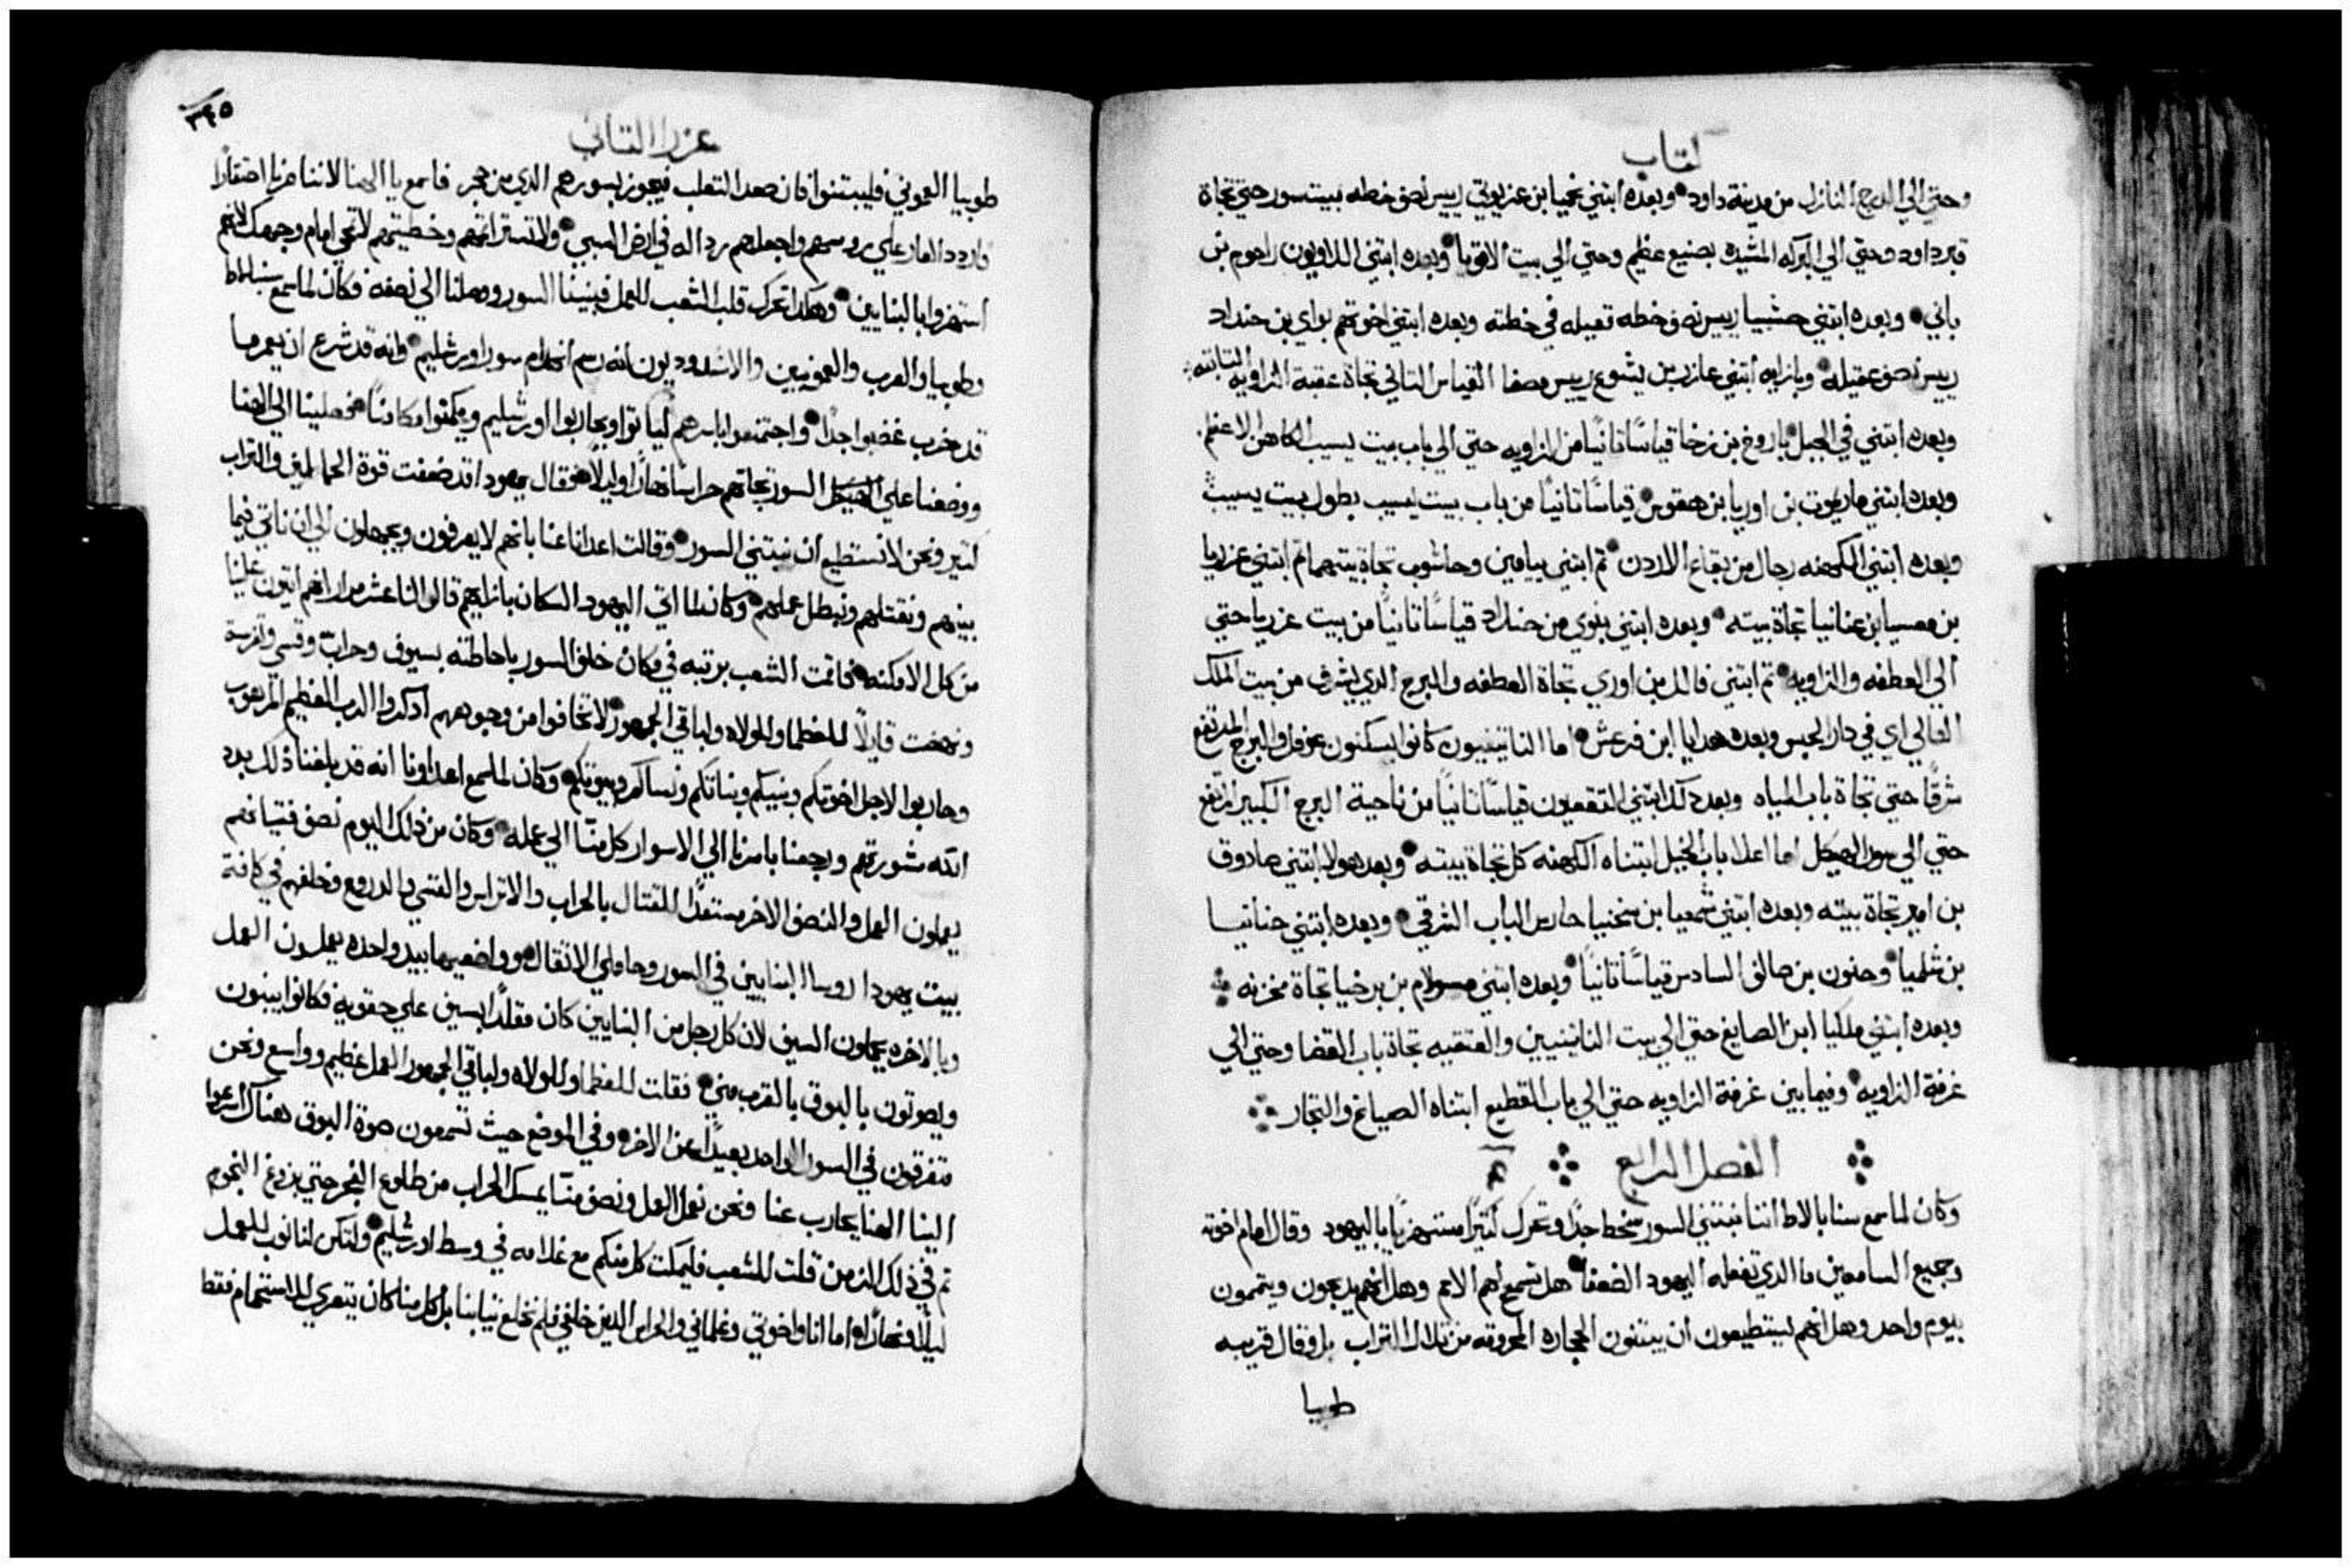 كتاب
وحتي الي الدرج النازل من مدينة داود وبعده ابتني نحميا ابن عزبوتي رييس نصف خطه ببيت سور حتي تجاة
قبر داود وحتي الي البركه المشيده بصنيع عظيم وحتي الي بيت الاقويا وبعده ابتني اللاويون راحوم بن
باني وبعده ابتني حشبيا رييس نصف خطه تعيله في خطته وبعده ابتني اخوتهم بواي بن حنداد
رييس نصف عقيله وبازايه ابتني عازر بن يشوع رييس مصفا القياس التاني تجاة عقبة الزاويه التابته
وبعده ابتني في الجبل باروخ بن زخا قياسًا تانيًا من الزاويه حتي الي باب بيت ليسيب الكاهن الاعظم
وبعده ابتني ماريموت بن اوريا بن هقوص قياسًا تانيًا من باب بيت ليسيب بطول بيت يسيب
وبعده ابتني الكهنه رجال من بقاع الاردن تم ابتني بيامين وحاشوب تجاة بيتهما تم ابتني عزريا
بن معسيا بن عنانيا تجاة بيته وبعده ابتني بنوي من حنداد قياسًا تانيًا من بيت عزريا حتي
الي العطفه والزاويه تم ابتني فالل بن اوري تجاة العطفه والبرج الدي يشرف من بيت الملك
العالي اي في دار الحبس وبعده هدايا ابن فرعش اما الناتينيون كانوا يسكنون عوفل والبرج المرتفع
شرقًا حتي تجاة باب المياه وبعد دلك ابتني التقعيون قياسًا تانيًا من ناحية البرج الكبير المرتفع
حتي الي سور الهيكل اما اعلا باب الخيل ابتناه الكهنه كل تجاة بيته وبعد هولا ابتني صادوق
بن امير تجاة بيته وبعده ابتني شمعيا بن سخنيا حارس الباب الشرقي وبعده ابتني حنانيا
بن شلميا وحنون بن صالف السادس قياسًا تانيًا وبعده ابتني مسولام بن برخيا تجاة مخزنه
وبعده ابتني ملكيا ابن الصايغ حتي الي بيت الناتينيين والعتقيه تجاة باب القضا وحتي الي
غرفة الزاويه وفيما بين غرفة الزاويه حتي الي باب القطيع ابتناه الصياغ والتجار
الفصل الرابع ٤
وكان لما سمع سنابالاط اننا نبتني السور سخط جدًا وتحرك كتيرًا مستهزيًا باليهود وقال امام اخوته
وجميع السامريين ما الدي تفعله اليهود الضعفا هل تسمع لهم الامم وهل انهم يدبحون ويتممون
بيوم واحد وهل انهم ليستطيعون ان يبتنون الحجاره المحروقه من تلال التراب بل وقال قريبه
طوبيا
٣٤٥
عزرا التاني
طوبيا العموني فليبتنوا فان صعد التعلب فيجوز بسورهم الدي من حجر فاسمع يا الهنا لاننا صرنا احتقارًا
واردد العار علي روسهم واجعلهم رداله في ارض السبي ولا تستر اتمهم وخطيتهم لا تمحي امام وجهك لانهم
استهزوا بالبنايين وهكدا تحرك قلب الشعب للعمل فبنينا السور ووصلنا الي نصفه فكان لما سمع سنابلاط
وطوبيا والعرب والعمونيين والاشدوديون انه رسم انهدام سور اورشليم وانه قد شرع ان يعمر ما
قد خرب غضبوا جدًا واجتمعوا باسرهم لياتوا ويحاربوا اورشليم ويكمنوا مكامنًا فصلينا الي الهنا
ووضعنا علي السور تجاتهم حراسًا نهارًا وليلًا فقال يهودا قد ضعفت قوة الحاملين والتراب
كتير ونحن لا نستطيع ان نبتني السور وقالت اعداانا عنا بانهم لا يعرفون ويجهلون الي ان ناتي فيما
بينهم ونقتلهم ونبطل عملهم وكان لما اتي اليهود السكان بازايهم قالوا لنا عشر مرار انهم ايتون علينا
من كل الامكنه فاقمت الشعب برتبه في مكان خلف السور باحاطته بسيوف وحراب وقسي واترسة
ونهضت قايلًا للعظما وللولاه ولباقي الجمهور لا تخافوا من وجوههم ادكروا الرب العظيم المرهوب
وحاربوا لاجل اخوتكم وبنيكم وبناتكم ونساكم وبيوتكم وكان لما سمع اعداونا انه قد بلغنا دلك بدد
الله مشورتهم ورجعنا باسرنا الي الاسوار كل منا الي عمله وكان من دلك اليوم نصف فتيانهم
يعملون العمل والنصف الاخر مستعدًا للقتال بالحراب والاتراس والقسي والدروع وخلفهم في كافة
بيت يهودا روسا البنايين في السور وحاملي الاتقال وواضعيها بيد واحده يعملون العمل
وبالاخره يمسكون السيف لان كل رجل من البنايين كان مقلدًا بسيف علي حقويه فكانوا يبنون
ويصوتون بالبوق بالقرب مني فقلت للعظما وللولاه ولباقي الجمهور العمل عظيم وواسع ونحن
متفرقون في السور الواحد بعيدًا عن الاخر وفي الموضع حيث تسمعون صوة البوق هناك اسرعوا
الينا الهنا يحارب عنا ونحن نعمل العمل ونصف منا يمسك الحراب من طلوع الفجر حتي بزوغ النجوم
تم في دلك الزمن قلت للشعب فليمكت كل منكم مع غلامه في وسط اورشليم ولتكن لنا نوب للعمل
ليلًا ونهارًا اما انا واخوتي وغلماني والحراس الدين خلفي فلم نخلع تيابنا بل كل منا كان يتعري للاستحمام فقط